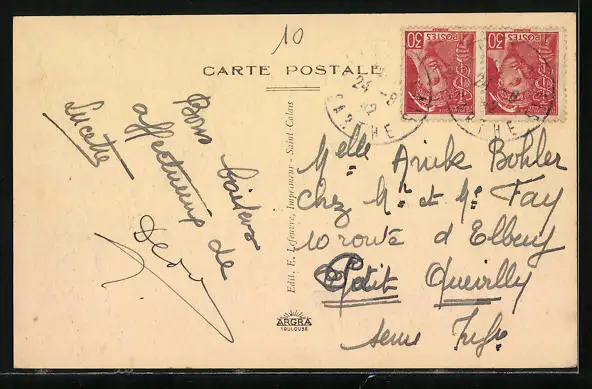 10
CARTE POSTALE
30
POSTES
30
POSTES
24 -8
42
SARTHE
24 -8
SARTHE
Bons baisers
affectueux de
Lucette
Edit. E. Lefeuvre, Imprimeur - Saint-Calais
Melle Anik Bohler
chez Mr et Me Fay
10 route d'Elbeuf
Petit Quevilly
Seine Infre
ARGRA
TOULOUSE